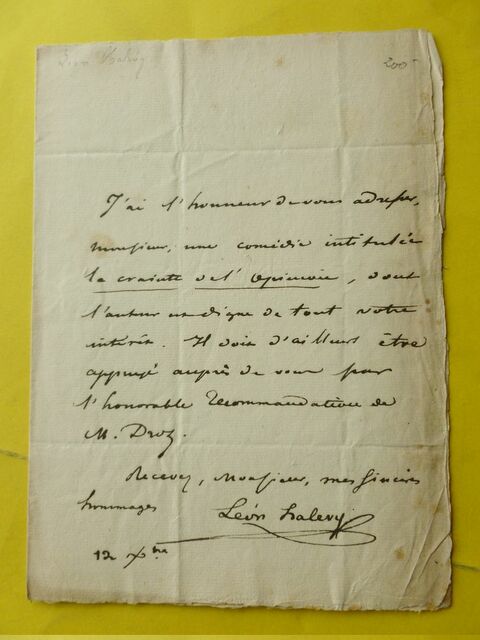 Léon Halévy
200
J'ai l'honneur de vous adresser,
monsieur, une comédie intitulée
la crainte de l'opinion, dont
l'auteur est digne de tout votre
intérêt. Il doit d'ailleurs être
appuyé auprès de vous par
l'honorable recommandation de
M. Droz.
Recevez, Monsieur, mes sincères
hommages
Léon halevy
12 Xbre